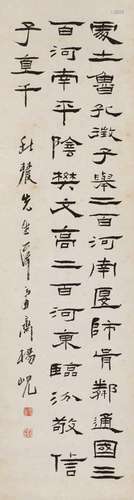 處士魯孔徵子舉二百河南匽師胥鄰通國三
百河南平陰樊文高二百河東臨汾敬信
子直千
秋農先生 楊峴